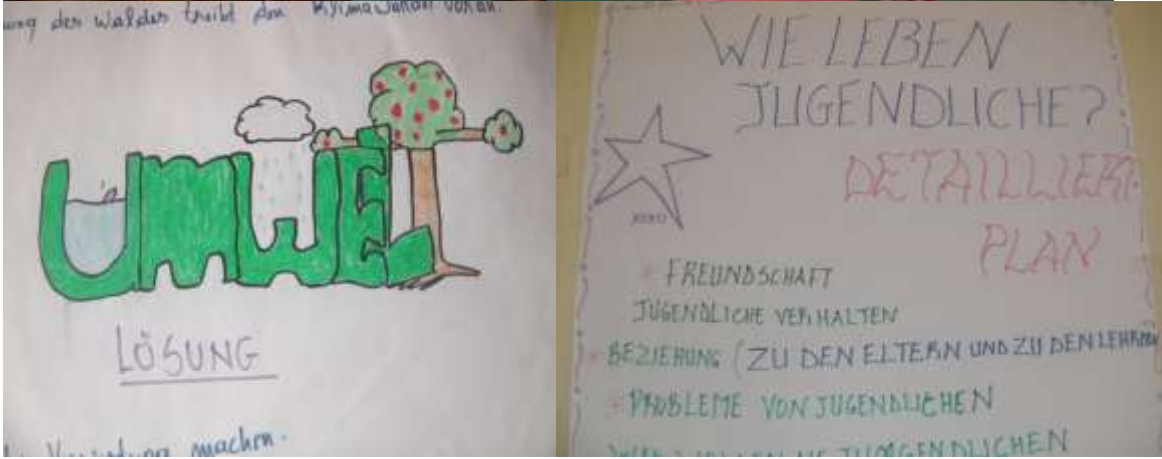 des Waldes treibt den Klimawandel voran.
UMWELT
LÖSUNG
machen.
WIE LEBEN
JUGENDLICHE?
DETAILLIERT
PLAN
XOXO
* FREUNDSCHAFT
JUGENDLICHE VERHALTEN
* BEZIEHUNG (ZU DEN ELTERN UND ZU DEN
* PROBLEME VON JUGENDLICHEN